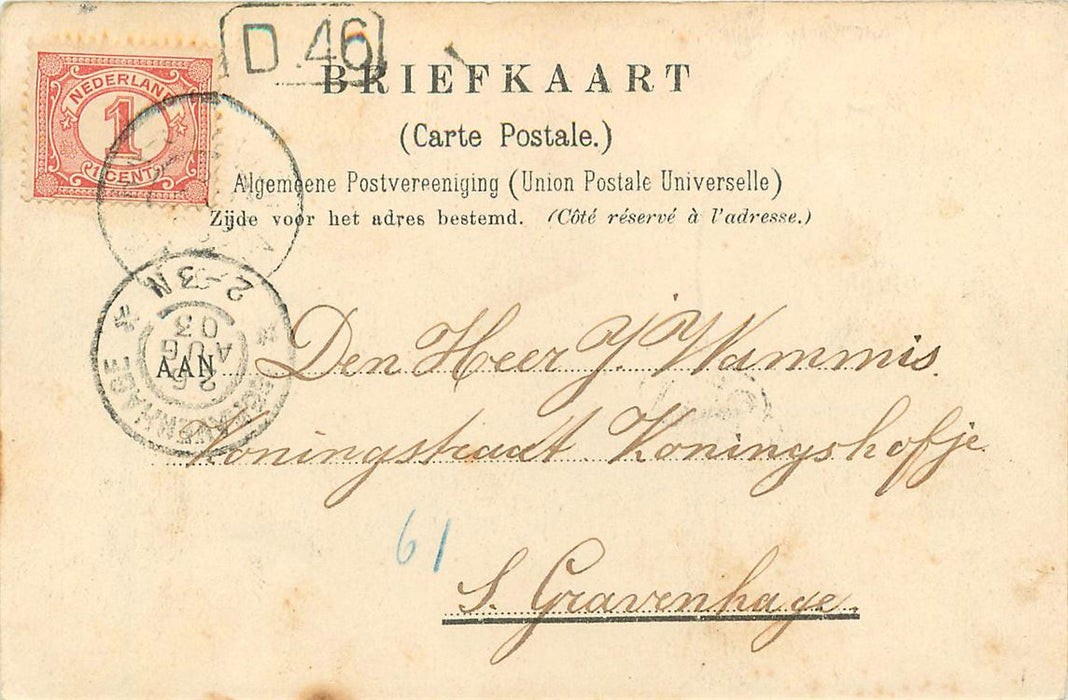 D 46
NEDERLAND
1
1 CENT
BRIEFKAART
(Carte Postale.)
Algemeene Postvereeniging (Union Postale Universelle)
Zijde voor het adres bestemd. (Côté réservé à l'adresse.)
2-3N
AUG
03
AAN Den Heer J. Wammis
Koningstraat Koningshofje
61
S. Gravenhage.